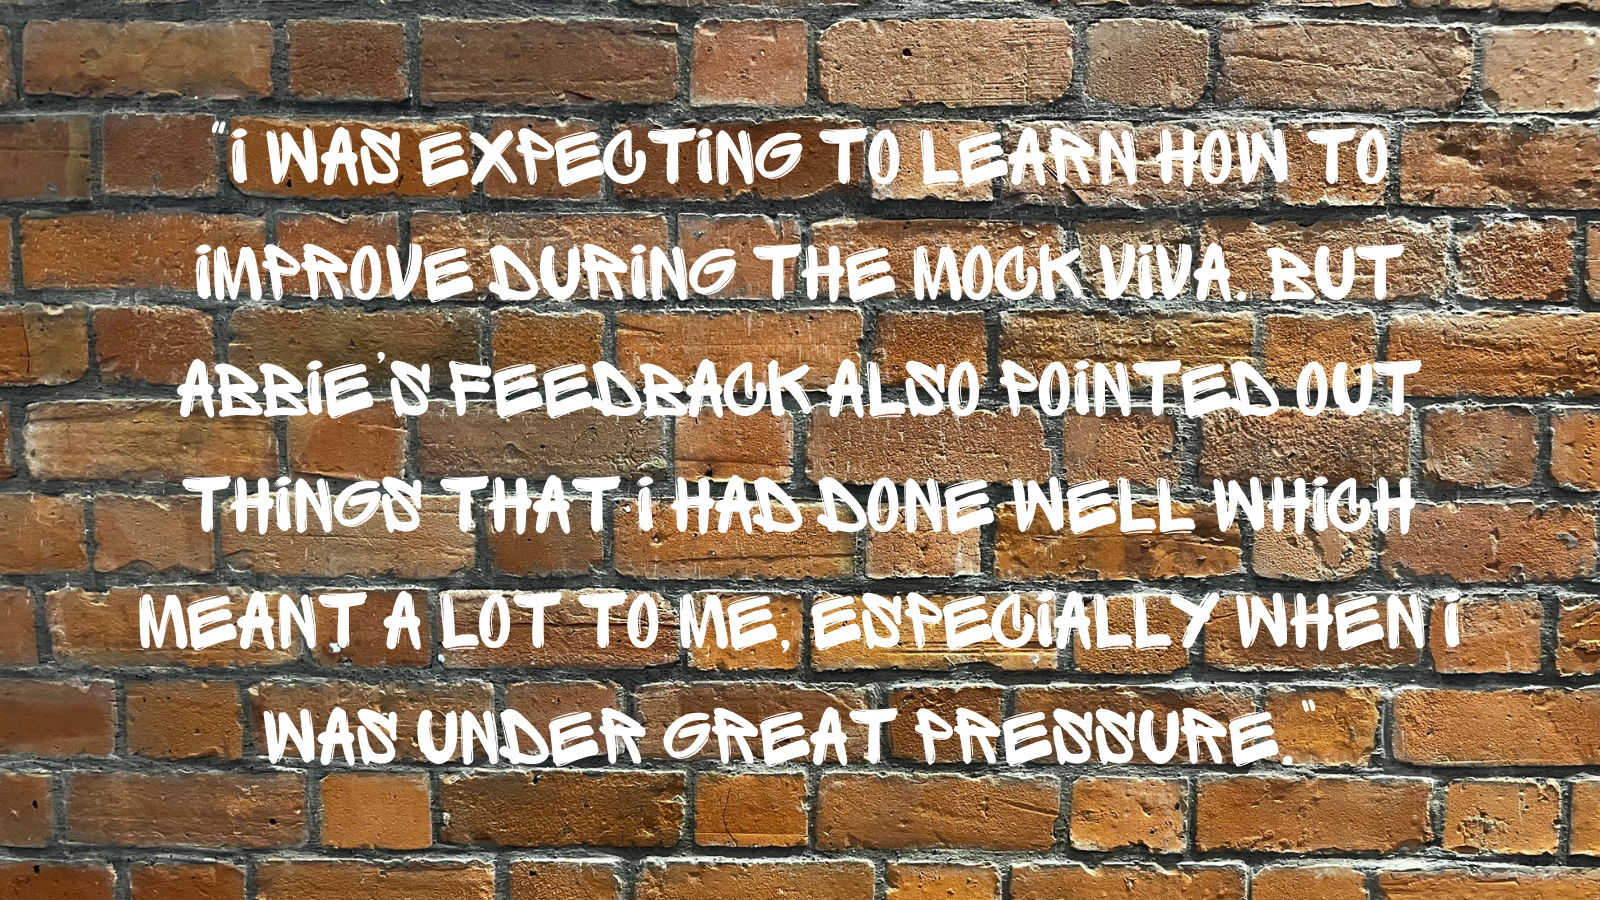 "I WAS EXPECTING TO LEARN HOW TO
IMPROVE DURING THE MOCK VIVA. BUT
ABBIE'S FEEDBACK ALSO POINTED OUT
THINGS THAT I HAD DONE WELL WHICH
MEANT A LOT TO ME, ESPECIALLY WHEN I
WAS UNDER GREAT PRESSURE."